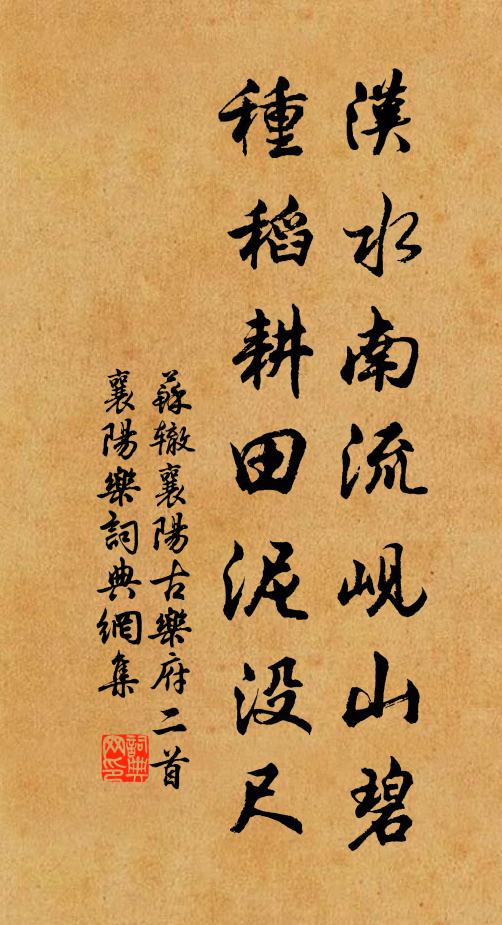 漢水南流峴山碧
種稻耕田泥没尺
蘇轍襄陽古樂府二首
襄陽樂詞典網集
詞典网印